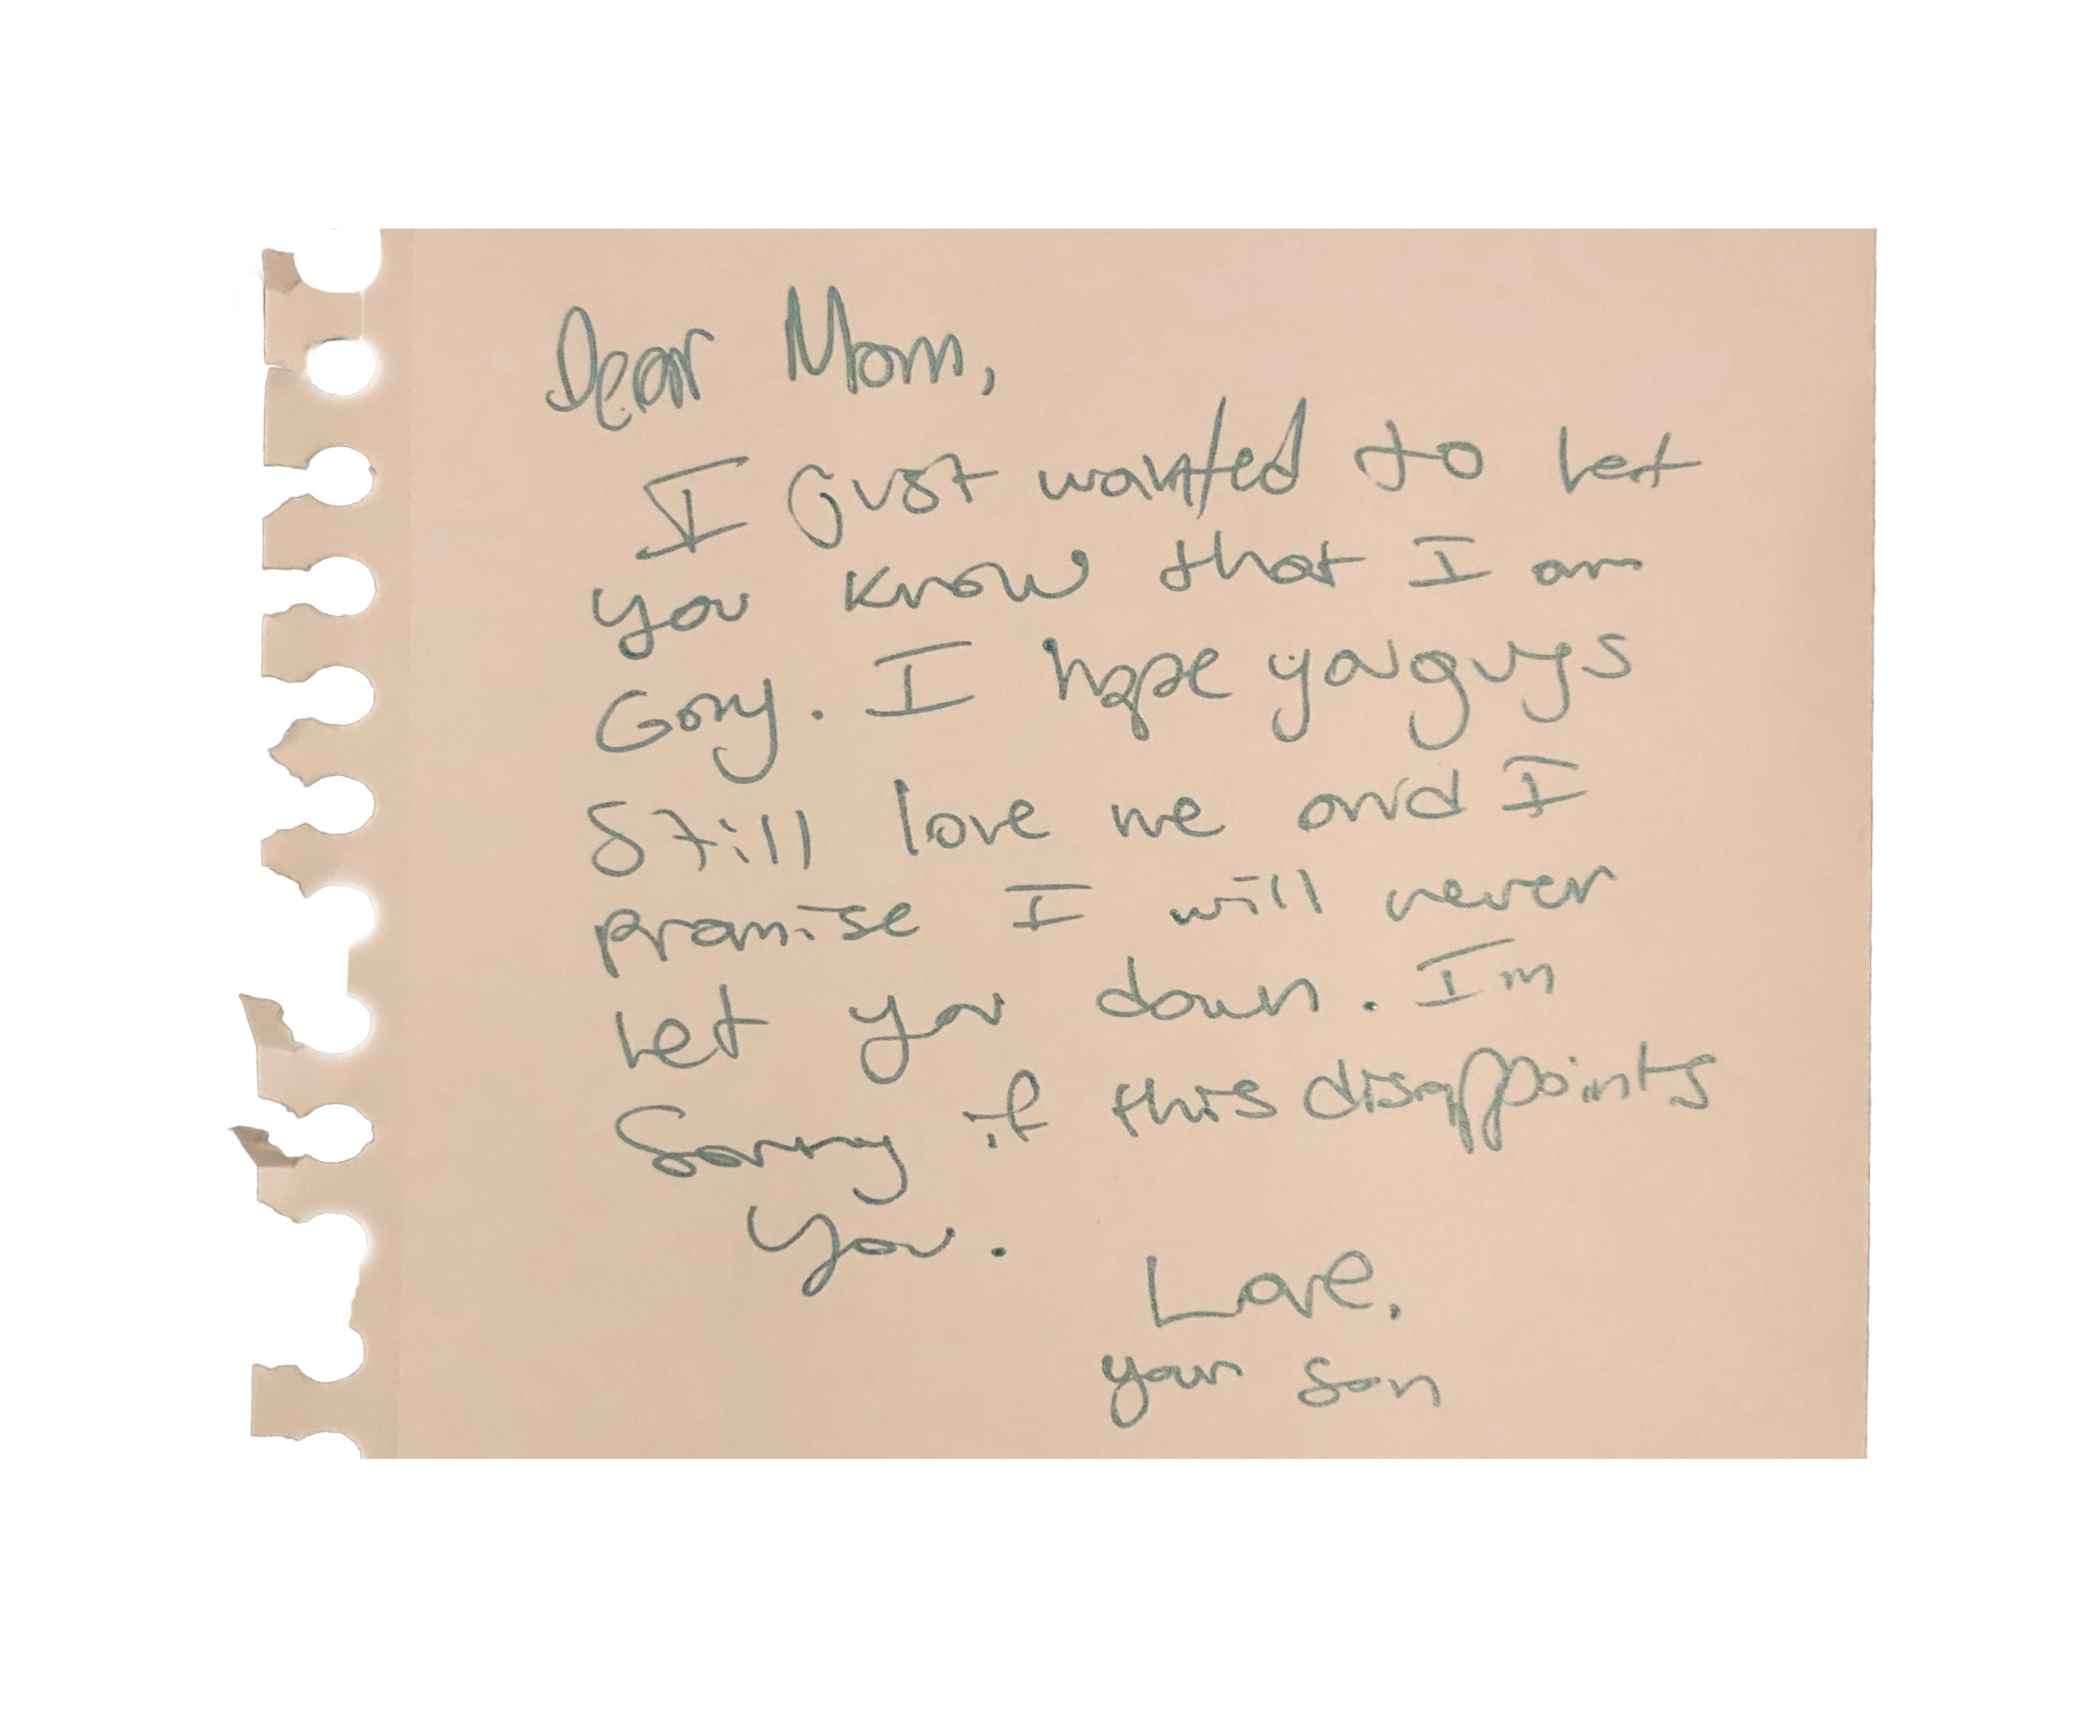 Dear Mom,
I just wanted to let
you know that I am
Gay. I hope you guys
Still love me and I
promise I will never
let you down. Im
Sorry if this disappoints
You.
Love,
your son